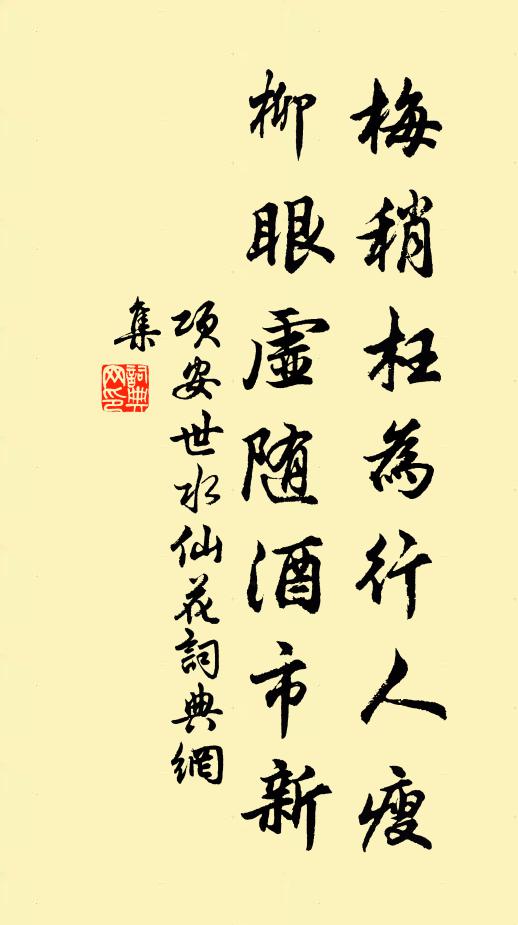 梅稍枉為行人瘦
柳眼虛随酒市新
项安世水仙花詞典網
集
詞典
网印